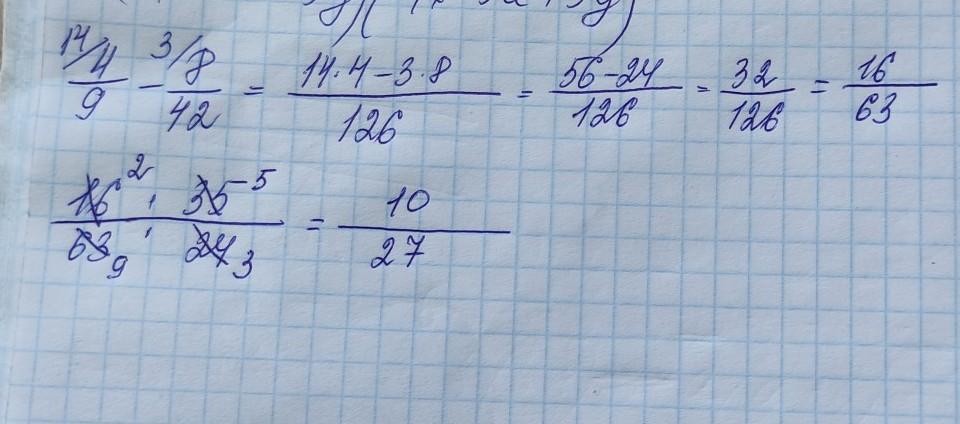 14/4/9 - 3/8/42 = 14·4-3·8/126 = 56-24/126 = 32/126 = 16/63
16²·35⁻⁵/63₉·24₃ = 10/27